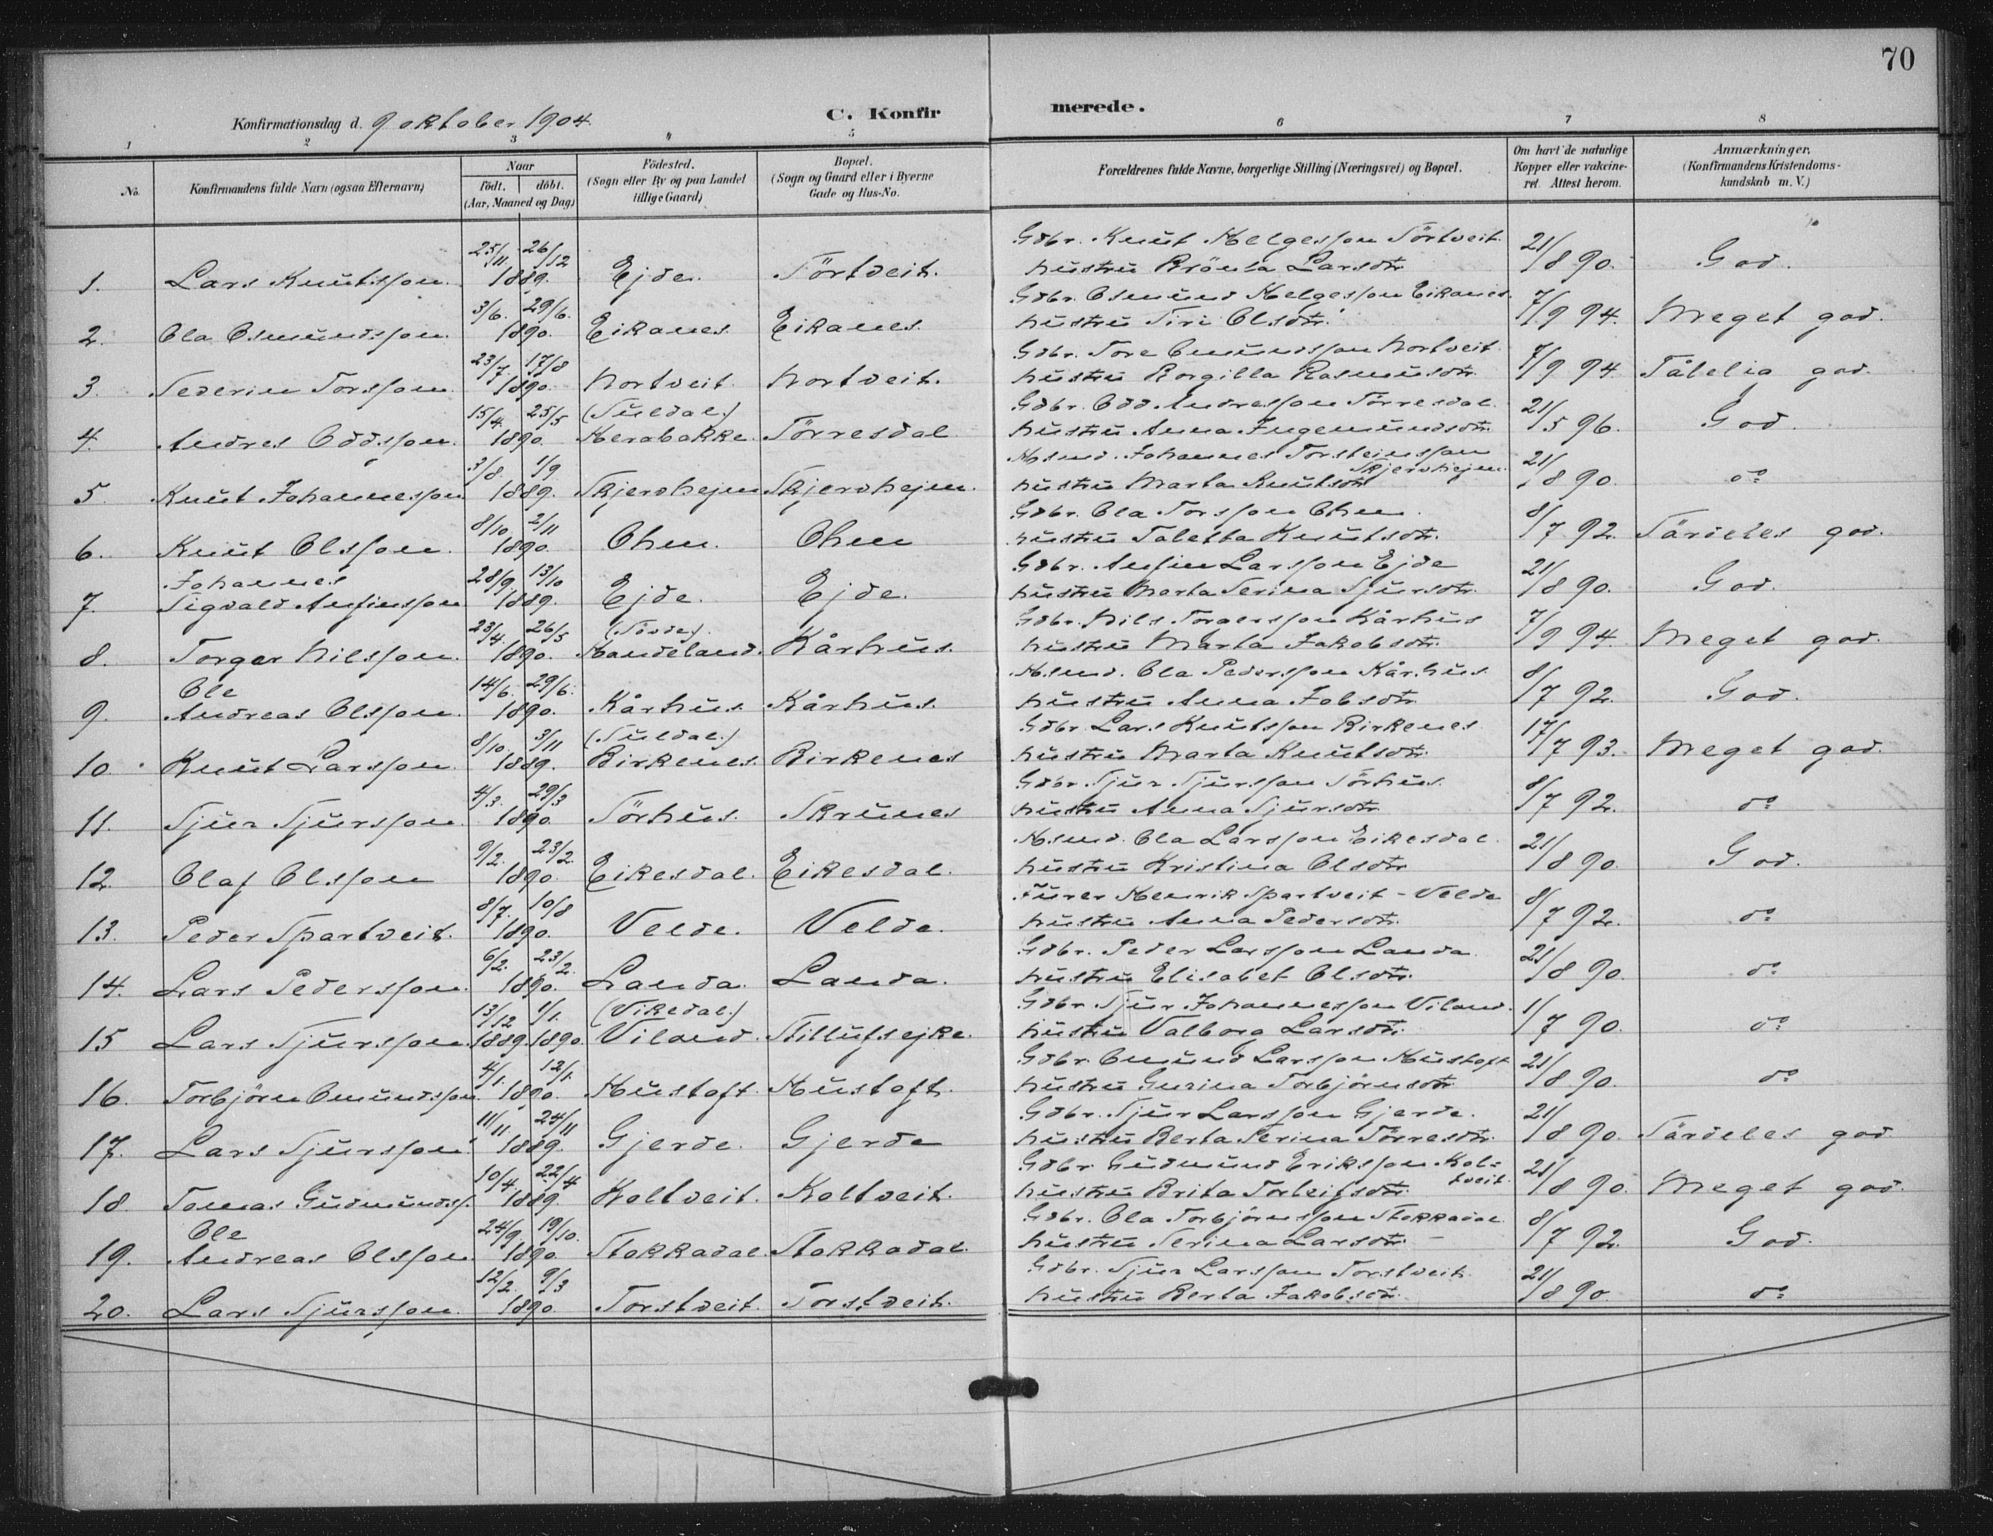 70
Konfirmationsdag d. 9 oktober 1904.
C. Konfirmerede.
1 2 3 4 5 6 7 8
No.
Konfirmandens fulde Navn (ogsaa Efternavn)
Naar
født. døbt.
(Aar, Maaned og Dag)
Födested.
(Sogn eller By og paa Landet
tillige Gaard)
Bopæl.
(Sogn og Gaard eller i Byerne
Gade og Hus-No.
Forældrenes fulde Navne, borgerlige Stilling (Næringsvei) og Bopæl.
Om havt de naturlige
Kopper eller vakcine-
ret. Attest herom.
Anmærkninger.
(Konfirmandens Kristendoms-
kundskab m. V.)
25/11. 26/12 Gdbr. Knut Helgesson Törtveit.
1. Lars Knutsson. 1889. Ejde. Törtveit. hustru Brönla Larsdtr. 21/8 90. God.
3/6. 29/6. Gdbr. Osmund Helgesson Eikanes.
2. Ola Osmundsson. 1890. Eikanes. Eikanes. hustru Siri Olsdtr. 7/9 94. Meget god.
23/7 17/8 Gdbr. Tore Omundsson Nortveit.
3. Severin Torsson. 1890. Nortveit. Nortveit. hustru Borgilla Rasmusdtr. 7/9 94. Tålelig god.
15/4. 25/5 (Suldal.) Gdbr. Odd Andresson Törresdal.
4. Andres Oddsson. 1890. Herabakke. Törresdal hustru Anna Ingemundsdtr. 21/5 96. God.
3/8. 1/9 Hsmd. Johannes Torsteinsson
Skjervhejm.
5. Knut Johannesson 1889. Skjervhejm Skjervhejm. hustru Marta Knutsdtr 21/8 90. do
8/10. 2/11 Gdbr. Ola Torsson Ohm.
6. Knut Olsson. 1890. Ohm. Ohm hustru Taletta Knutsdtr. 8/7 92. Särdeles god.
Johannes 28/9 13/10 Gdbr. Anfin Larsson Ejde
7. Sigvald Anfinsson 1889. Ejde. Ejde. hustru Marta Serina Sjursdtr. 21/8 90. God.
23/4. 26/5 (Sövde). Gdbr. Nils Torgersson Kårhus
8. Torger Nilsson. 1890. Handeland. Kårhus. hustru Marta Jakobsdtr. 7/9 94. Meget god.
Ole 14/6. 29/6. Hsmd. Ola Pedersson Kårhus
9. Andreas Olsson. 1890. Kårhus Kårhus. hustru Anna Jobsdtr. 8/7 92. God.
8/10. 3/11 (Suldal.) Gdbr. Lars Knutsson Birkenes.
10. Knut Larsson. 1889. Birkenes. Birkenes hustru Marta Knutsdtr. 17/7 93. Meget god.
4/3. 29/3 Gdbr. Sjur Sjursson Sörhus.
11. Sjur Sjursson 1890. Sörhus. Skrunes hustru Anna Sjursdtr. 8/7 92. do
9/2. 23/2. Hsmd. Ola Larsson Eikesdal.
12. Olaf Olsson 1890. Eikesdal. Eikesdal. hustru Kristina Olsdtr. 21/8 90. God.
8/7. 10/8 Furer Henrik Spartveit - Velde
13. Peder Spartveit. 1890. Velde. Velde. hustru Anna Pedersdtr. 8/7 92. do
6/2. 23/2. Gdbr. Peder Larsson Landa.
14. Lars Pedersson. 1890. Landa. Landa. hustru Elisabet Olsdtr. 21/8 90. do
13/12 1/1. (Vikedal.) Gdbr. Sjur Johannesson Viland.
15 Lars Sjursson. 1889. 1890. Viland. Stillufsejke. hustru Valborg Larsdtr. 1/7 90. do
4/1. 12/1. Gdbr. Omund Larsson Hustoft
16. Torbjörn Omundsson 1890. Hustoft. Hustoft. hustru Gurina Torbjörnsdtr 21/8 90. do
11/11 24/11 Gdbr. Sjur Larsson Gjerde.
17. Lars Sjursson. 1889. Gjerde. Gjerde hustru Berta Serina Törresdtr. 21/8 90. Särdeles god
10/4. 22/4 Gdbr. Gudmund Eriksson Kol-
tveit.
18. Tomas Gudmundss. 1889. Koltveit. Koltveit. hustru Brita Torleifsdtr. 21/8 90. Meget god.
Ole 24/9 19/10. Gdbr. Ola Torbjörnsson Stokkadal
19. Andreas Olsson. 1890. Stokkadal. Stokkadal. hustru Serina Larsdtr. 8/7 92. God.
12/2. 9/3 Gdbr. Sjur Larsson Torstveit.
20. Lars Sjursson. 1890. Torstveit. Torstveit. hustru Berta Jakobsdtr. 21/8 90. do